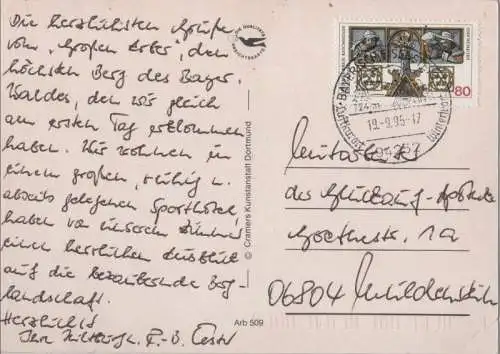 Die herzlichsten Grüße
vom "Großen Arber", dem
höchsten Berg des Bayer.
Waldes, den wir gleich
am ersten Tag erklommen
haben. Wir wohnen in
einem großen, ruhig u.
abseits gelegenen Sporthotel,
haben von unserem Zimmer
einen herrlichen Ausblick
auf die bezaubernde Berg-
landschaft.
Herzlichst
Ihre
© Cramers Kunstanstalt Dortmund
Arb 509
80
19.-9.95-17
94252
Mitarbeiter
der Apotheke
Goethestr. 1a
06804 Muldenstein